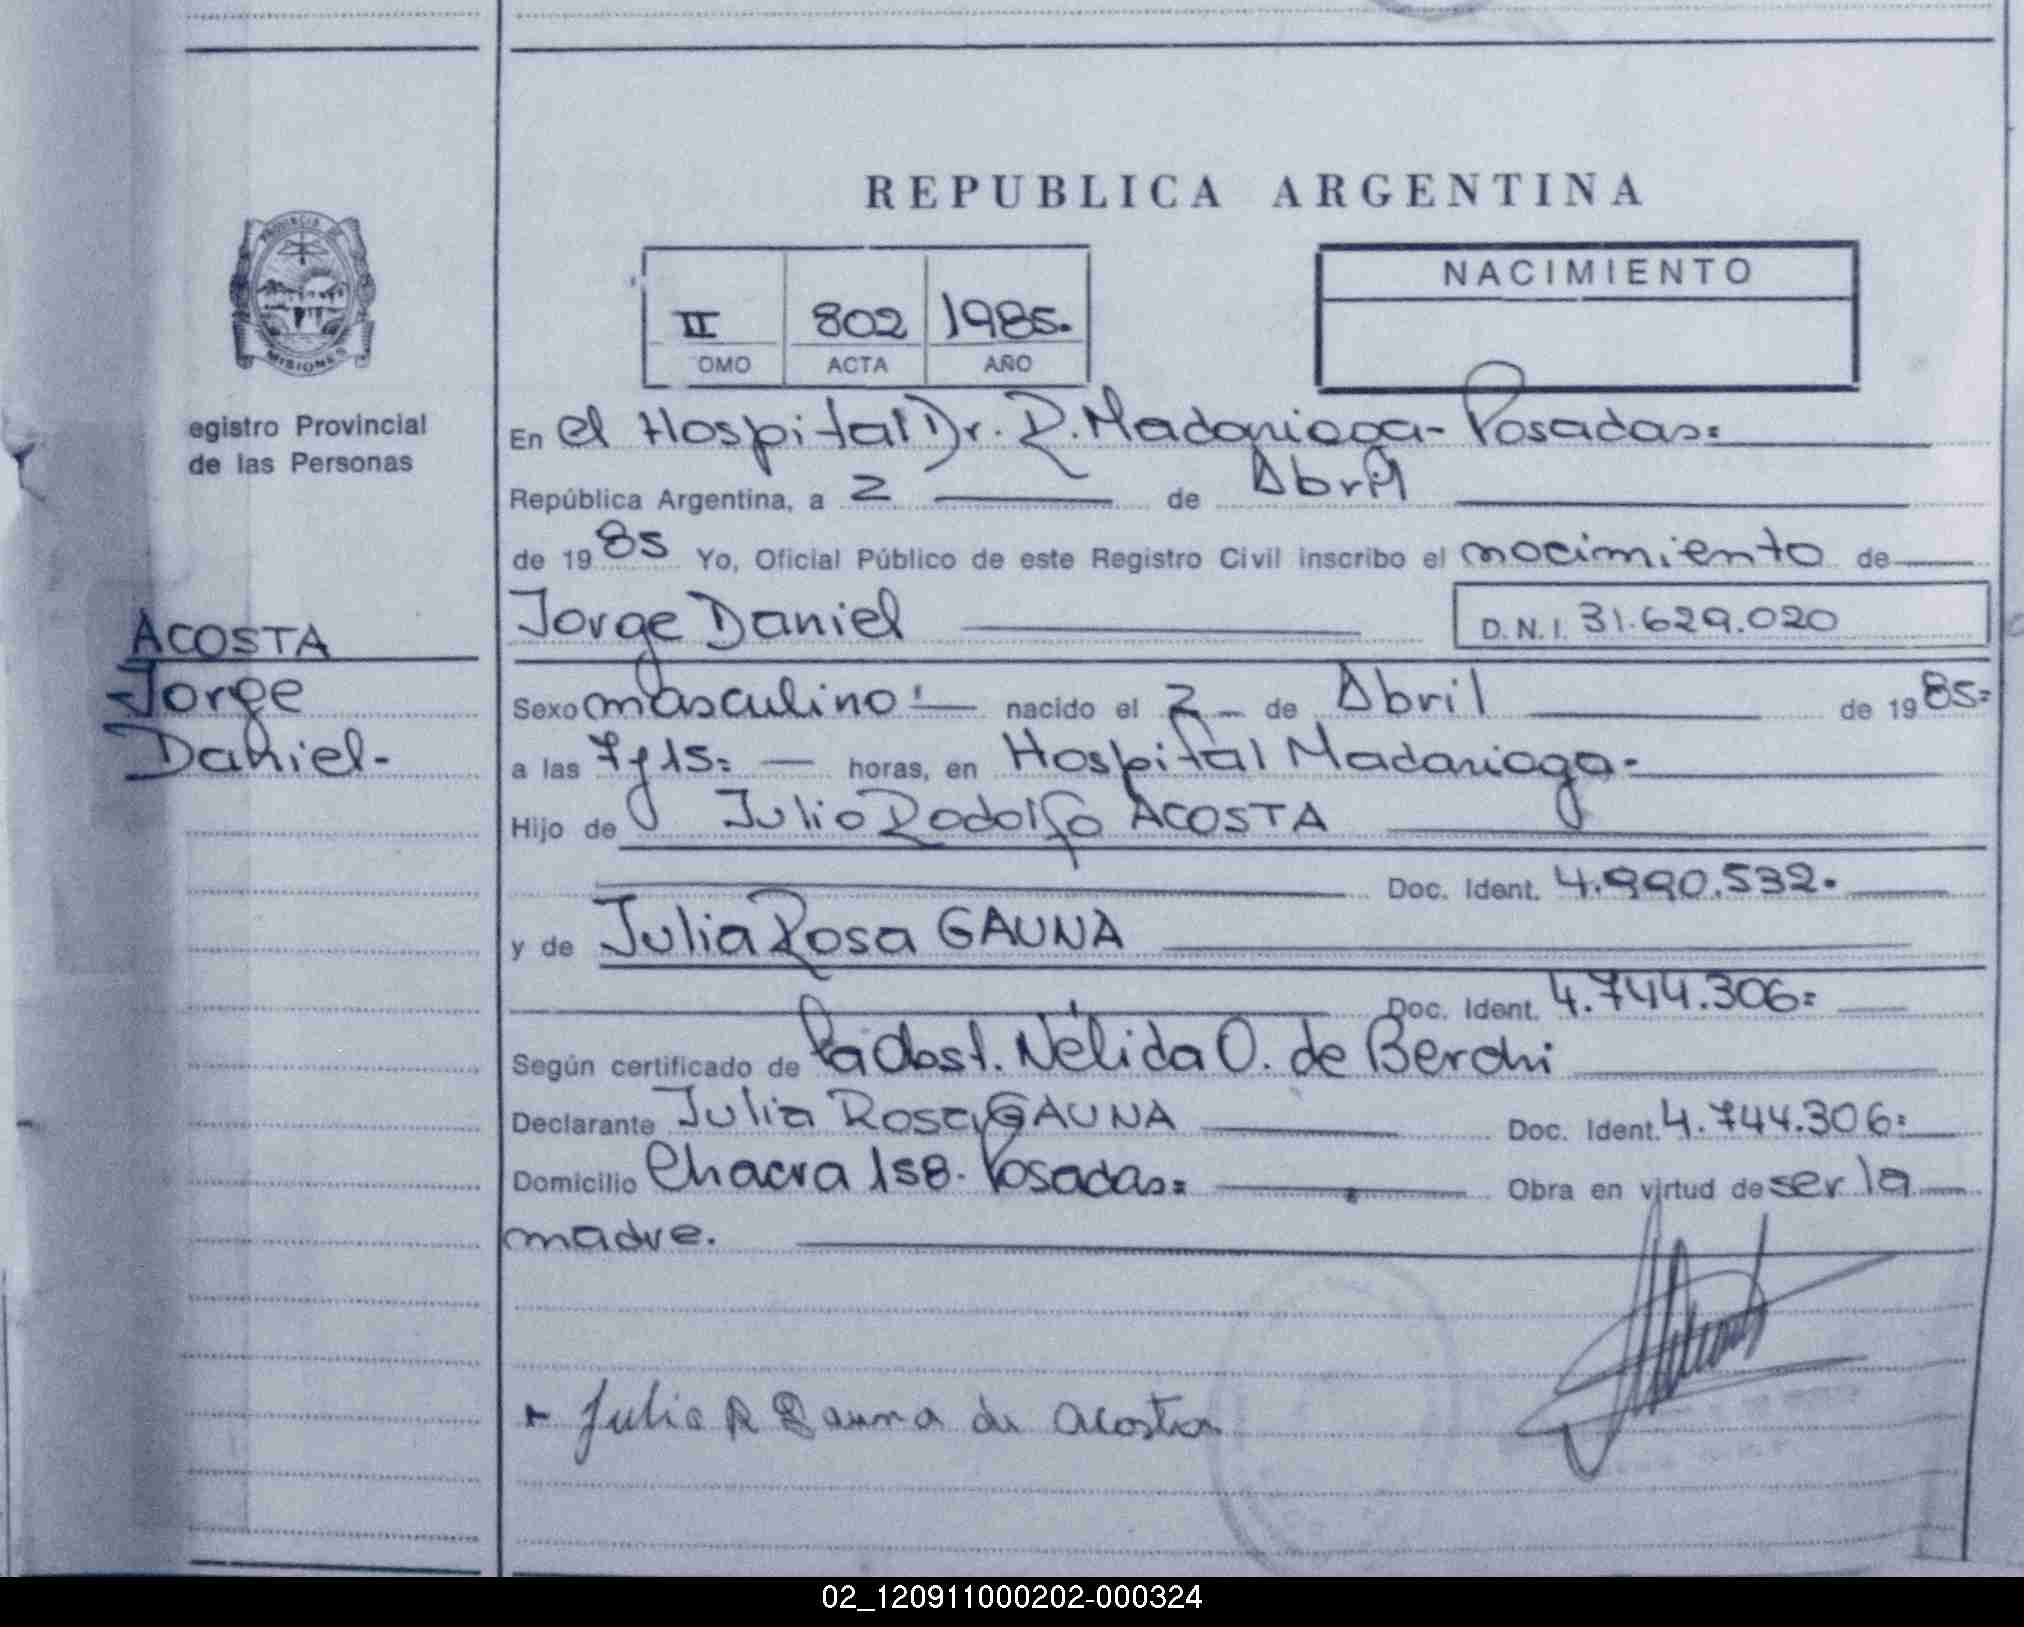 REPUBLICA ARGENTINA
PROVINCIA DE
MISIONES
egistro Provincial
de las Personas
ACOSTA
Jorge
Daniel-
II 802 1985.
OMO ACTA AÑO
NACIMIENTO
En el Hospital Dr. R. Madariaga - Posadas=
República Argentina, a 2 de Abril
de 1985 Yo, Oficial Público de este Registro Civil inscribo el nacimiento de
Jorge Daniel D.N.I. 31.629.020
Sexo masculino nacido el 2 de Abril de 1985=
a las 7 y 15= horas, en Hospital Madariaga-
Hijo de Julio Rodolfo ACOSTA
Doc. Ident. 4.990.532.
y de Julia Rosa GAUNA
Doc. Ident. 4.744.306=
Según certificado de la Obst. Nélida O. de Berchi
Declarante Julia Rosa GAUNA Doc. Ident. 4.744.306=
Domicilio Chacra 158. Posadas= Obra en virtud de ser la
madre.
Julia R Gauna de Acosta
02_120911000202-000324